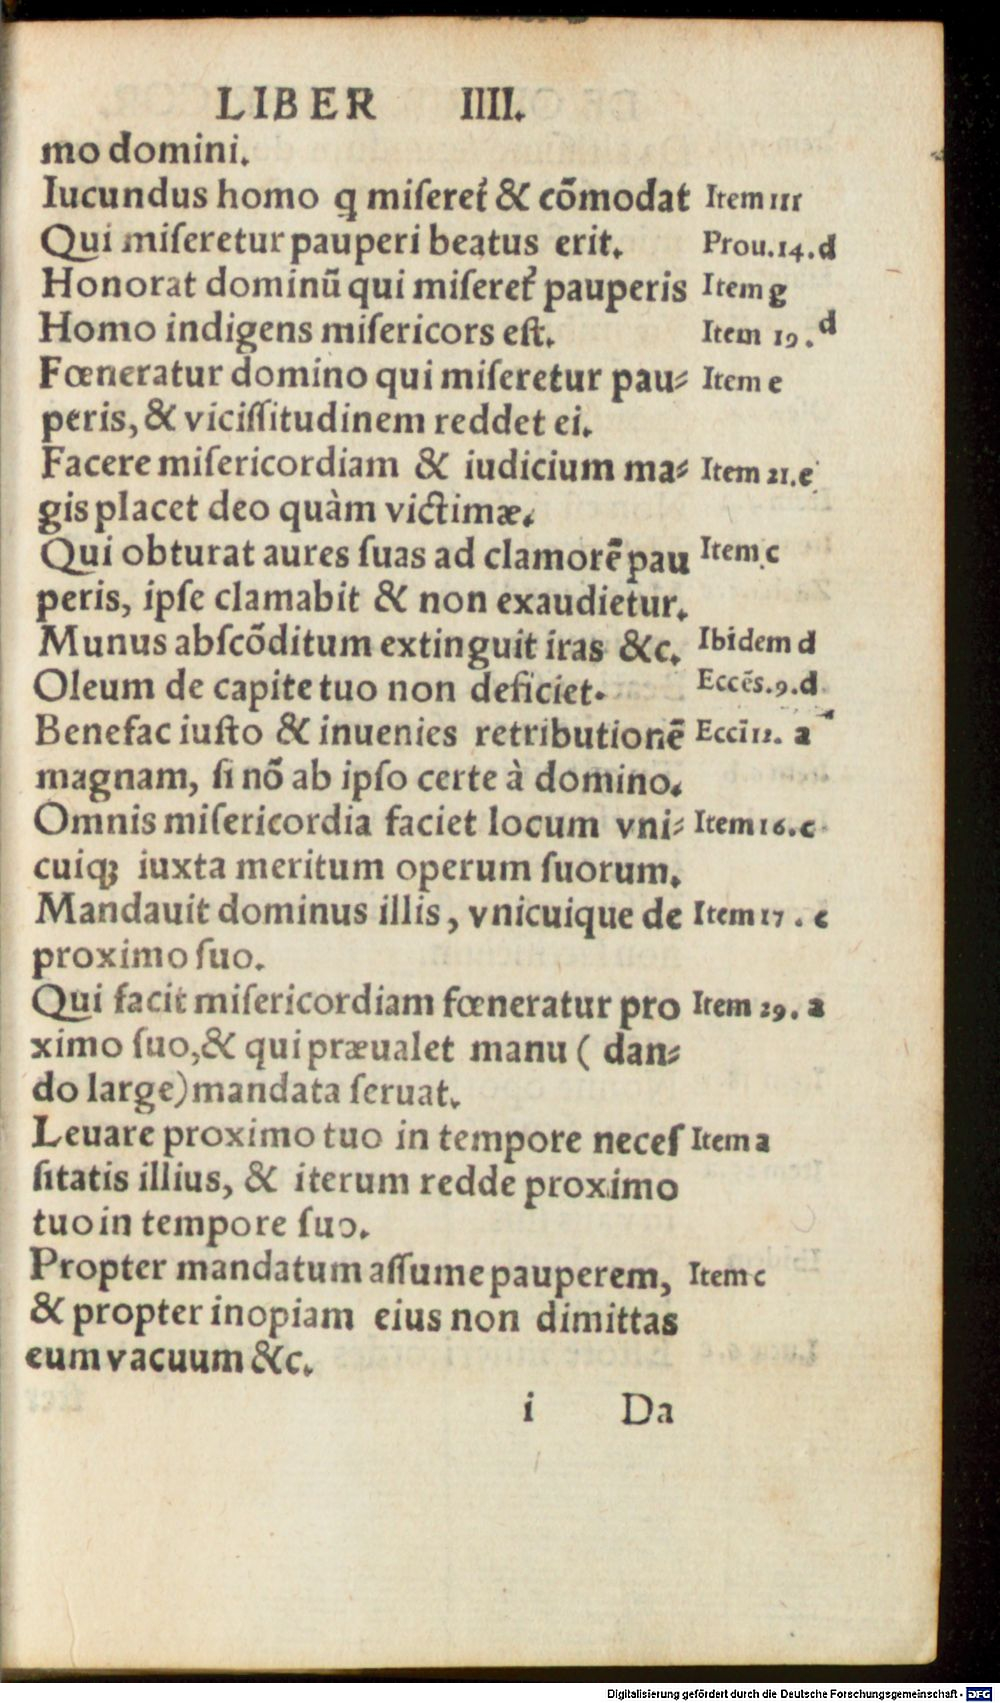 LIBER IIII.
mo domini.
Iucundus homo q miſeret᷑ & cõmodat Item 111
Qui miſeretur pauperi beatus erit. Prou.14.d
Honorat dominũ qui miſeret᷑ pauperis Item g
Homo indigens miſericors eſt. Item 19.d
Fœneratur domino qui miſeretur pau⸗ Item e
peris, & viciſſitudinem reddet ei.
Facere miſericordiam & iudicium ma⸗ Item 21.e
gis placet deo quàm victimæ.
Qui obturat aures ſuas ad clamorẽ pau Item c
peris, ipſe clamabit & non exaudietur.
Munus abſcõditum extinguit iras &c. Ibidem d
Oleum de capite tuo non deficiet. Eccẽs.9.d
Benefac iuſto & inuenies retributionẽ Ecci̅ 12. a
magnam, ſi nõ ab ipſo certe à domino.
Omnis miſericordia faciet locum vni⸗ Item 16.c
cuiqꝫ iuxta meritum operum ſuorum.
Mandauit dominus illis, vnicuique de Item 17.c
proximo ſuo.
Qui facit miſericordiam fœneratur pro Item 29. a
ximo ſuo, & qui præualet manu ( dan⸗
do large) mandata ſeruat.
Leuare proximo tuo in tempore neceſ Item a
ſitatis illius, & iterum redde proximo
tuo in tempore ſuo.
Propter mandatum aſſume pauperem, Item c
& propter inopiam eius non dimittas
eum vacuum &c.
i Da
Digitalisierung gefördert durch die Deutsche Forschungsgemeinschaft - DFG